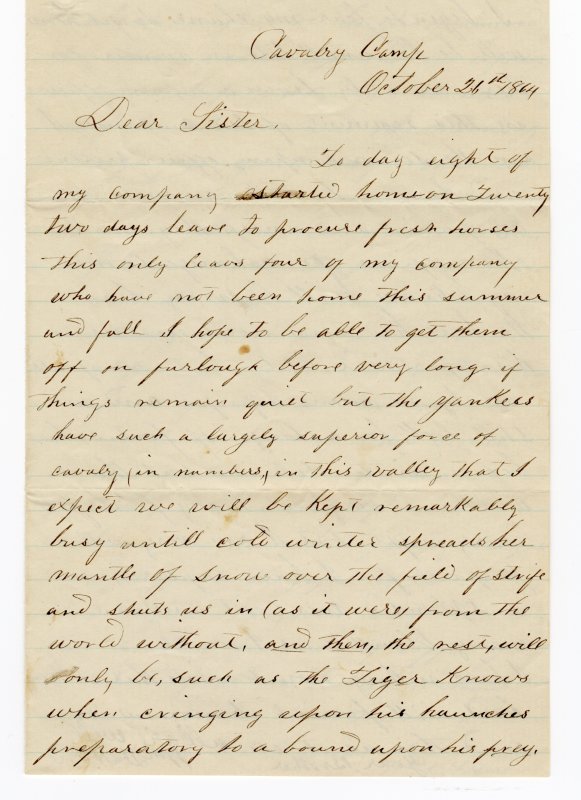 Cavalry Camp
October 26th 1864
Dear Sister,
To day eight of
my company started home on Twenty
two days leave to procure fresh horses
this only leavs four of my company
who have not been home this summer
and fall I hope to be able to get them
off on furlough before very long if
things remain quiet but the Yankees
have such a largely superior force of
cavalry (in numbers,) in this valley that I
expect we will be kept remarkably
busy untill cold winter spreads her
mantle of snow over the field of strife
and shuts us in (as it were) from the
world without, and then, the rest, will
only be, such as the Tiger Knows
when cringing upon his haunches
preparatory to a bound upon his prey.